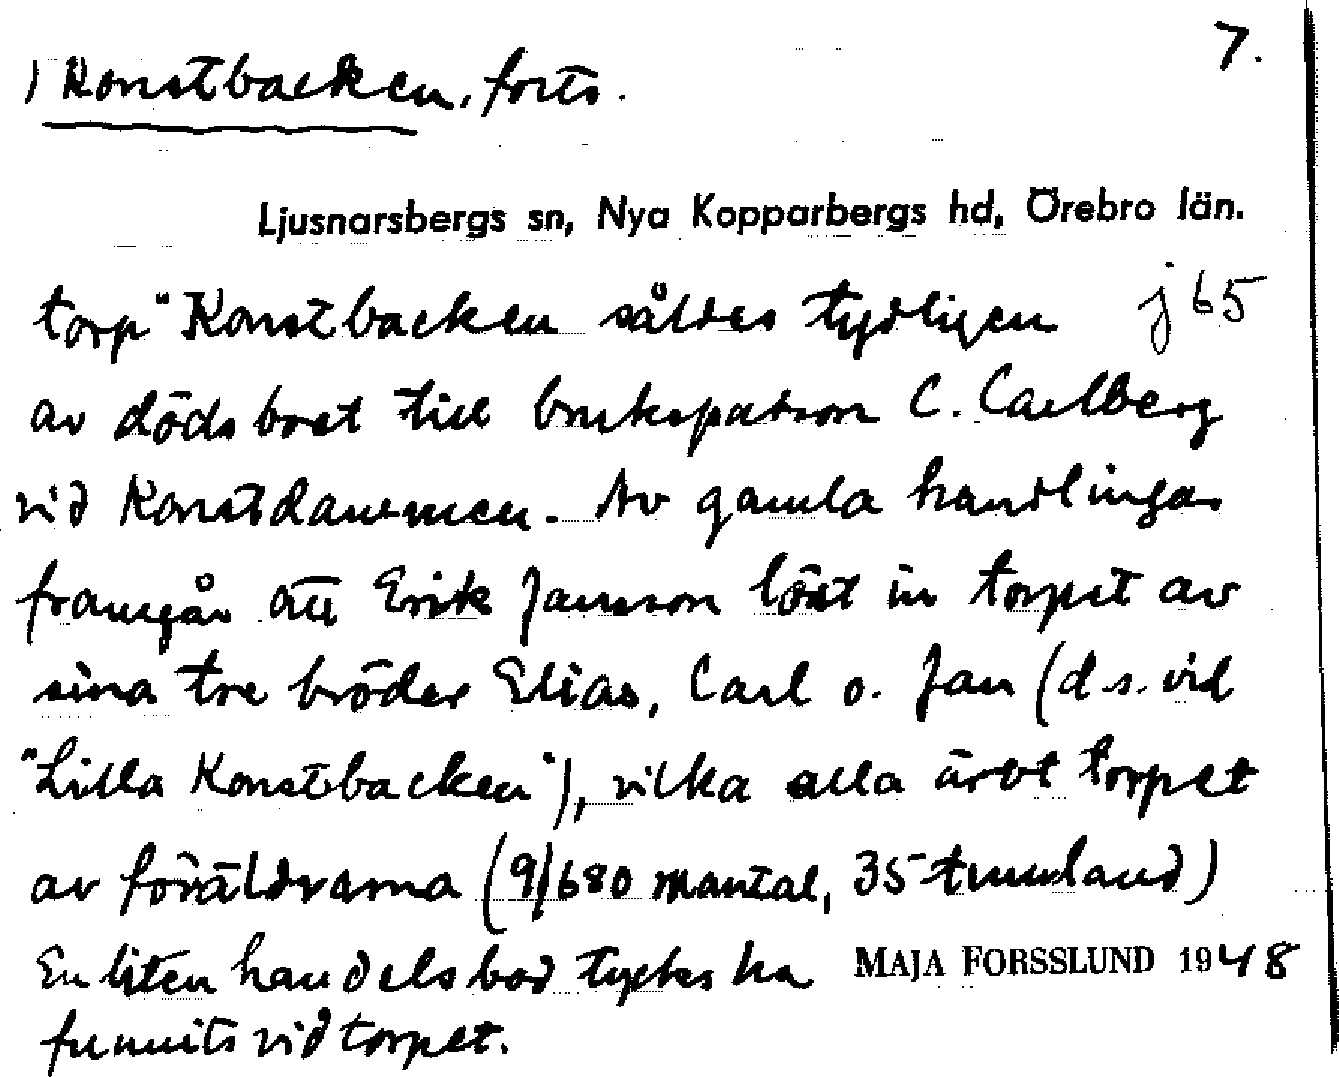 7.
) Konstbacken, forts.
Ljusnarsbergs sn, Nya Kopparbergs hd, Örebro län.
torp" Konstbacken såldes tydligen j 65
av dödsboet till brukspatron C. Carlberg
vid Konstdammen. Av gamla handlingar
framgår att Erik Jansson löst in torpet av
sina tre bröder Elias, Carl o. Jan (d.s. vid
"Lilla Konstbacken"), vilka alla ärvt torpet
av föräldrarna (9/680 mantal, 35 tunnland)
En liten handelsbod tycks ha MAJA FORSSLUND 1948
funnits vid torpet.